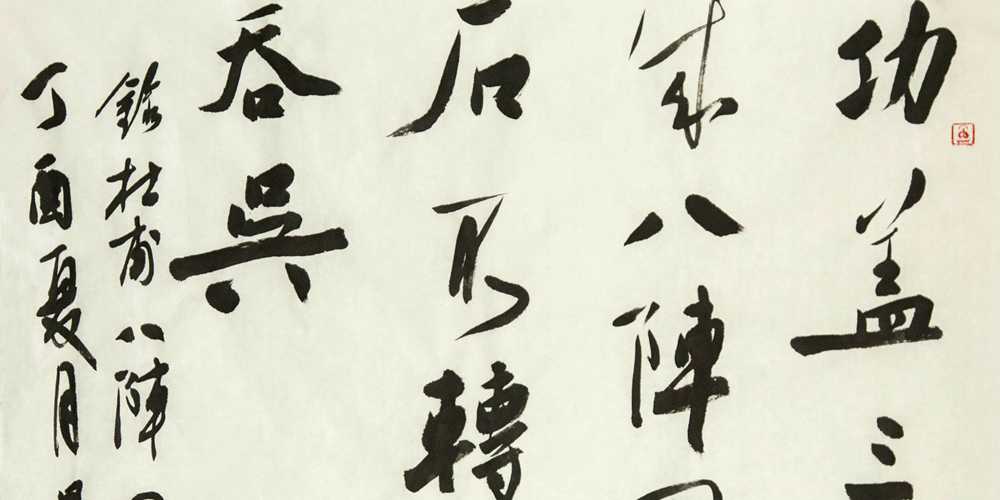 功盖三
成八陣
石不轉
吞吳
錄杜甫八陣
丁酉夏月